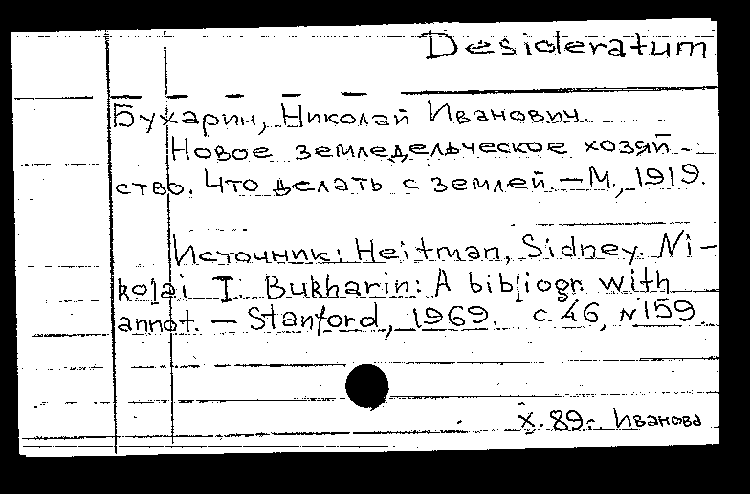 Desideratum
Бухарин, Николай Иванович
Новое земледельческое хозяй-
ство. Что делать с землей. — М., 1919.
Источник: Heitman, Sidney. Ni-
kolai I. Bukharin: A bibliogr. with
annot. — Stanford, 1969. с. 46, №159.
X. 89. Иванова